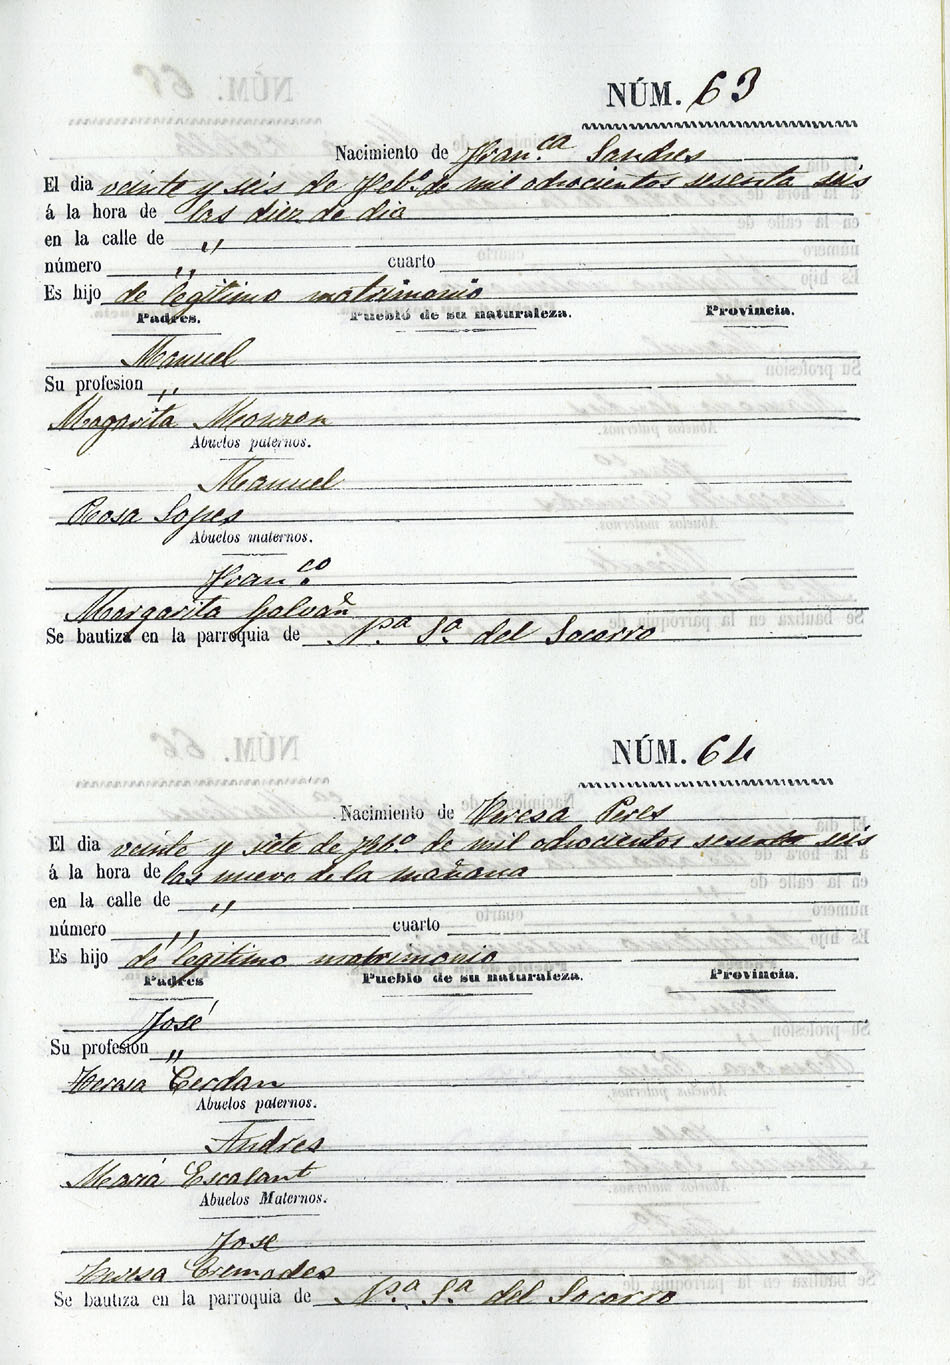 NÚM. 63
Nacimiento de Fran.ca Sandres
El dia veinte y seis de Feb.o de mil odrocientos sesenta seis
á la hora de las diez de dia
en la calle de "
número " cuarto
Es hijo de legitimo matrimonio
Padres. Pueblo de su naturaleza. Provincia.
Manuel
Su profesion "
Margarita Monzon
Abuelos paternos.
Manuel
Rosa Lopes
Abuelos maternos.
Fran.co
Margarita Galvañ
Se bautiza en la parroquia de N.ra S.a del Socorro
NÚM. 64
Nacimiento de Teresa Peres
El dia veinte y siete de Feb.o de mil odrocientos sesenta seis
á la hora de las nueve de la mañana
en la calle de "
número " cuarto
Es hijo de legitimo matrimonio
Padres Pueblo de su naturaleza. Provincia.
José
Su profesion "
Teresa Cerdan
Abuelos paternos.
Andres
Maria Escalant
Abuelos Maternos.
Jose
Teresa Cremades
Se bautiza en la parroquia de N.ra S.a del Socorro